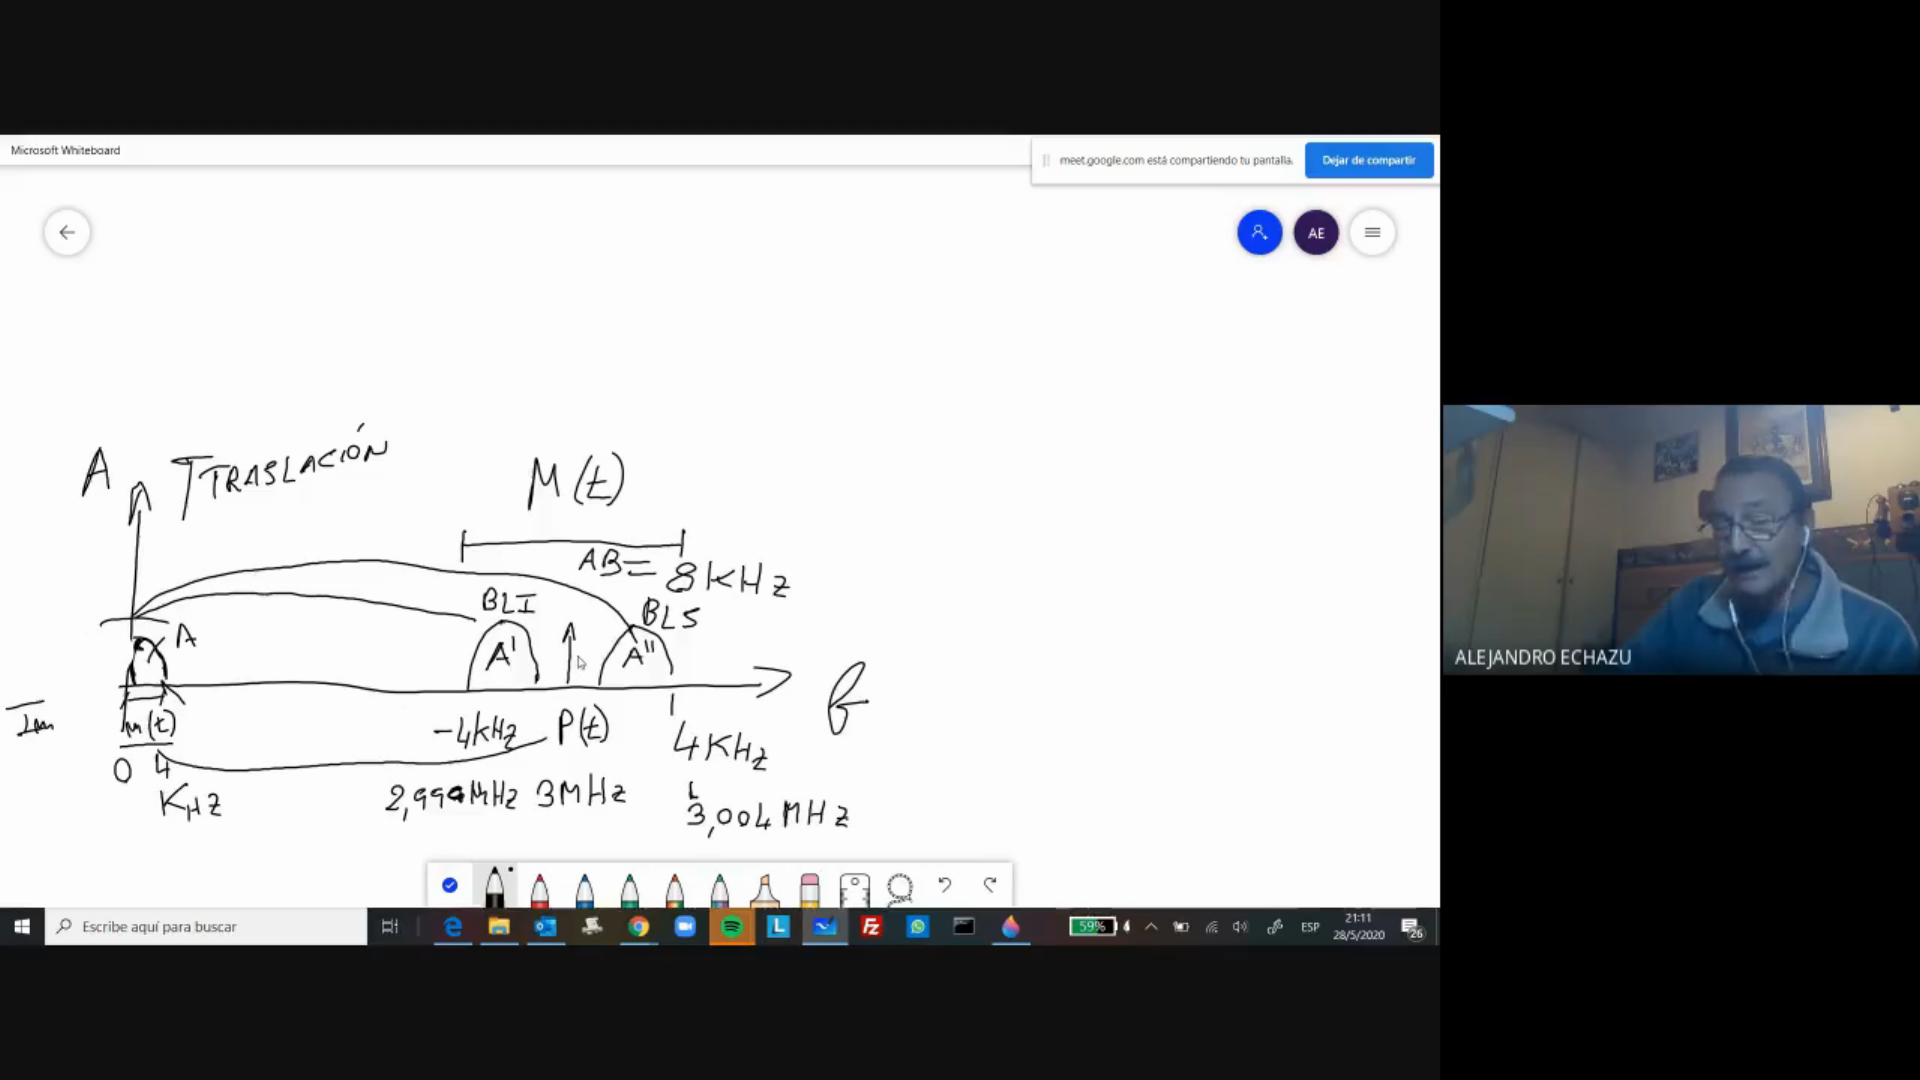 Microsoft Whiteboard
meet.google.com está compartiendo tu pantalla.
Dejar de compartir
AE
A
TRASLACIÓN
M(t)
AB= 8KHz
BLI
BLS
A
A'
A''
f
m(t)
-4KHz
P(t)
4KHz
0 4
KHz
2,999MHz 3MHz
3,004MHz
ALEJANDRO ECHAZU
Escribe aquí para buscar
L
Fz
59%
ESP
21:11
28/5/2020
26